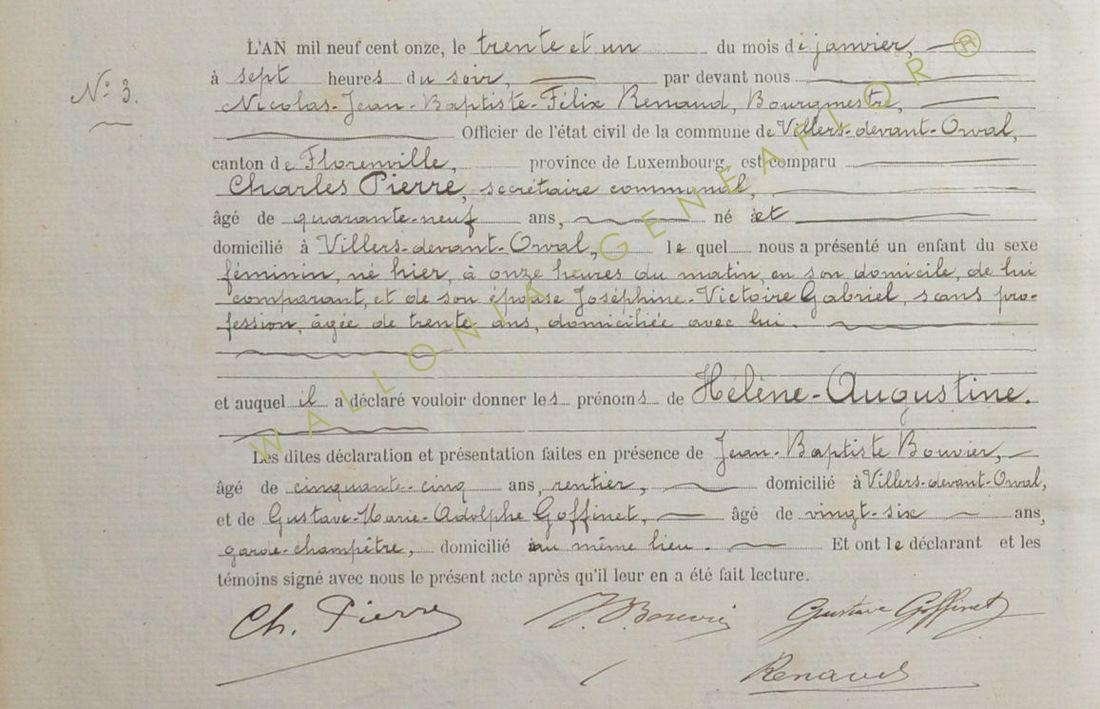 L'AN mil neuf cent onze, le trente et un du mois de janvier,
N° 3.
à sept heures du soir, par devant nous
Nicolas-Jean-Baptiste-Félix Renaud, Bourgmestre,
Officier de l'état civil de la commune de Villers-devant-Orval,
canton de Florenville, province de Luxembourg, est comparu
Charles Pierre, secrétaire communal,
âgé de quarante-neuf ans, né et
domicilié à Villers-devant-Orval, lequel nous a présenté un enfant du sexe
féminin, né hier, à onze heures du matin, en son domicile, de lui
comparant, et de son épouse Joséphine-Victoire Gabriel, sans pro-
fession, âgée de trente ans, domiciliée avec lui.
et auquel il a déclaré vouloir donner les prénoms de Hélène-Augustine.
Les dites déclaration et présentation faites en présence de Jean-Baptiste Bouvier,
âgé de cinquante-cinq ans, rentier, domicilié à Villers-devant-Orval,
et de Gustave-Marie-Adolphe Goffinet, âgé de vingt-six ans,
garde-champêtre, domicilié au même lieu. Et ont le déclarant et les
témoins signé avec nous le présent acte après qu'il leur en a été fait lecture.
Ch. Pierre J. B. Bouvier Gustave Goffinet
Renaud
WALLONIA GENEAFLOR ®